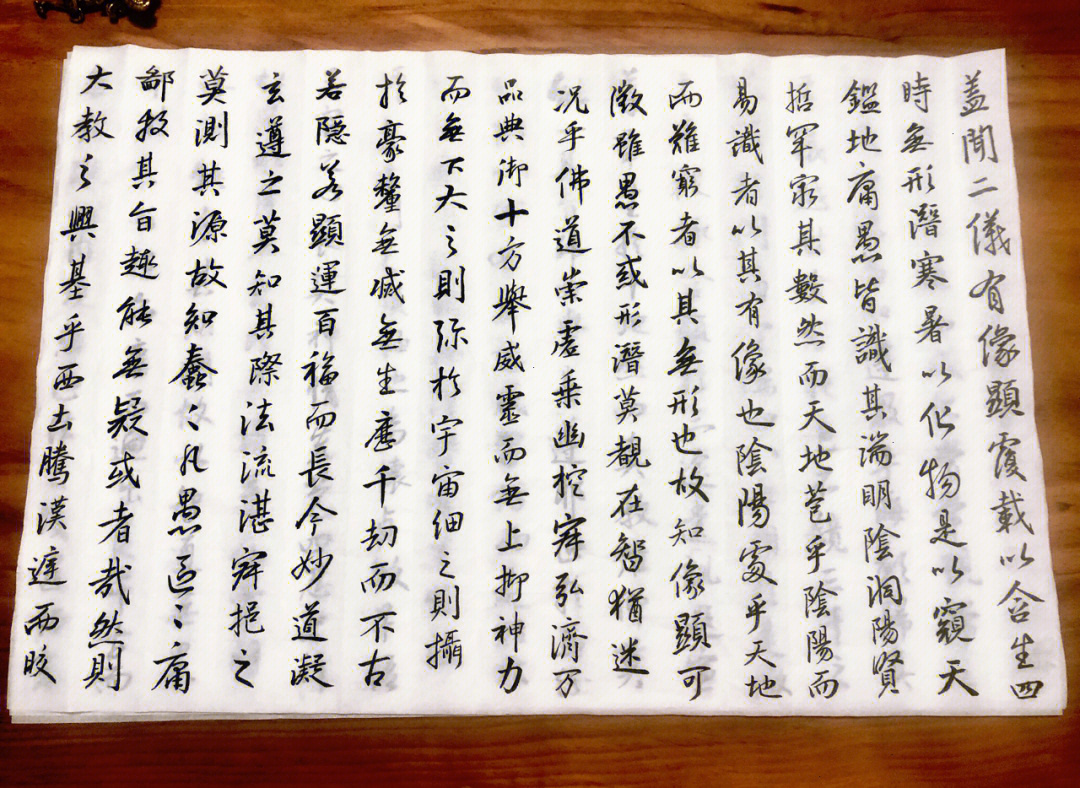 盖聞二儀有像顯覆載以含生四
時無形潛寒暑以化物是以窺天
鑑地庸愚皆識其端明陰洞陽賢
哲罕窮其數然而天地苞乎陰陽而
易識者以其有像也陰陽處乎天地
而難窮者以其無形也故知像顯可
徵雖愚不或形潛莫覩在智猶迷
况乎佛道崇虛乘幽控寂弘濟万
品典御十方舉威靈而無上抑神力
而無下大之則弥於宇宙細之則攝
於豪釐無滅無生歷千劫而不古
若隱若顯運百福而長今妙道凝
玄遵之莫知其際法流湛寂挹之
莫測其源故知蠢〻凡愚區〻庸
鄙投其旨趣能無疑或者哉然則
大教之興基乎西土騰漢庭而皎